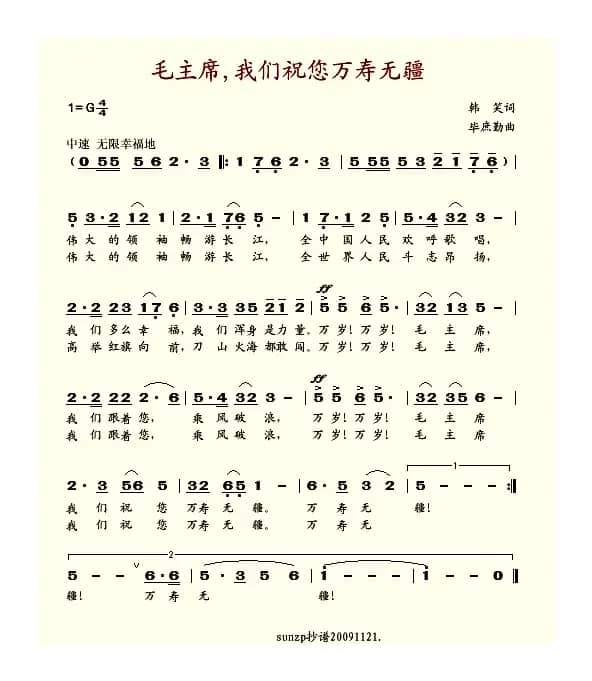 毛主席,我们祝您万寿无疆
1=G 4/4
韩 笑词
毕庶勤曲
中速 无限幸福地
(0 55 5 6 2· 3 ‖: 1 7 6 2· 3 | 5 55 53 2 1 7 6)
5 3·2 12 1 | 2·1 76 5 - | 1 7·1 2 5 | 5·4 32 3 - |
伟 大 的 领 袖 畅 游 长 江, 全 中 国 人 民 欢 呼 歌 唱,
伟 大 的 领 袖 畅 游 长 江, 全 世 界 人 民 斗 志 昂 扬,
ff
2·2 23 17 6 | 3·3 35 21 2 | 5 5 6 5· | 32 13 5 - |
我 们 多么 幸 福, 我 们 浑身 是力 量。 万 岁! 万 岁! 毛 主 席,
高 举 红旗 向 前, 刀 山 火海 都敢 闯。 万 岁! 万 岁! 毛 主 席,
ff
2·2 22 2·6 | 5·4 32 3 - | 5 5 6 5· | 32 35 6 - |
我 们 跟着 您, 乘 风 破 浪, 万 岁! 万 岁! 毛 主 席
我 们 跟着 您, 乘 风 破 浪, 万 岁! 万 岁! 毛 主 席
1
2· 3 56 5 | 32 65 1 - | 6·5 3 2 | 5 - - - :‖
我 们 祝 您 万寿 无 疆。 万 寿 无 疆!
我 们 祝 您 万寿 无 疆。 万 寿 无
2
5 - - 6·6 | 5·3 5 6 | 1 - - - | 1 - - 0 ‖
疆! 万 寿 无 疆!
sunzp抄谱20091121.